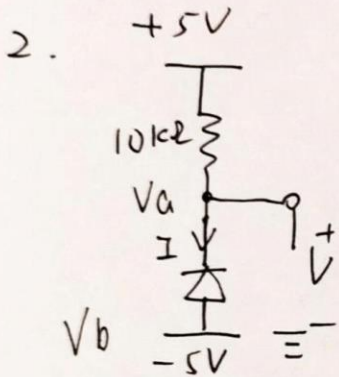 2.
+5V
10kΩ
Va
I
+
V
-
Vb
-5V